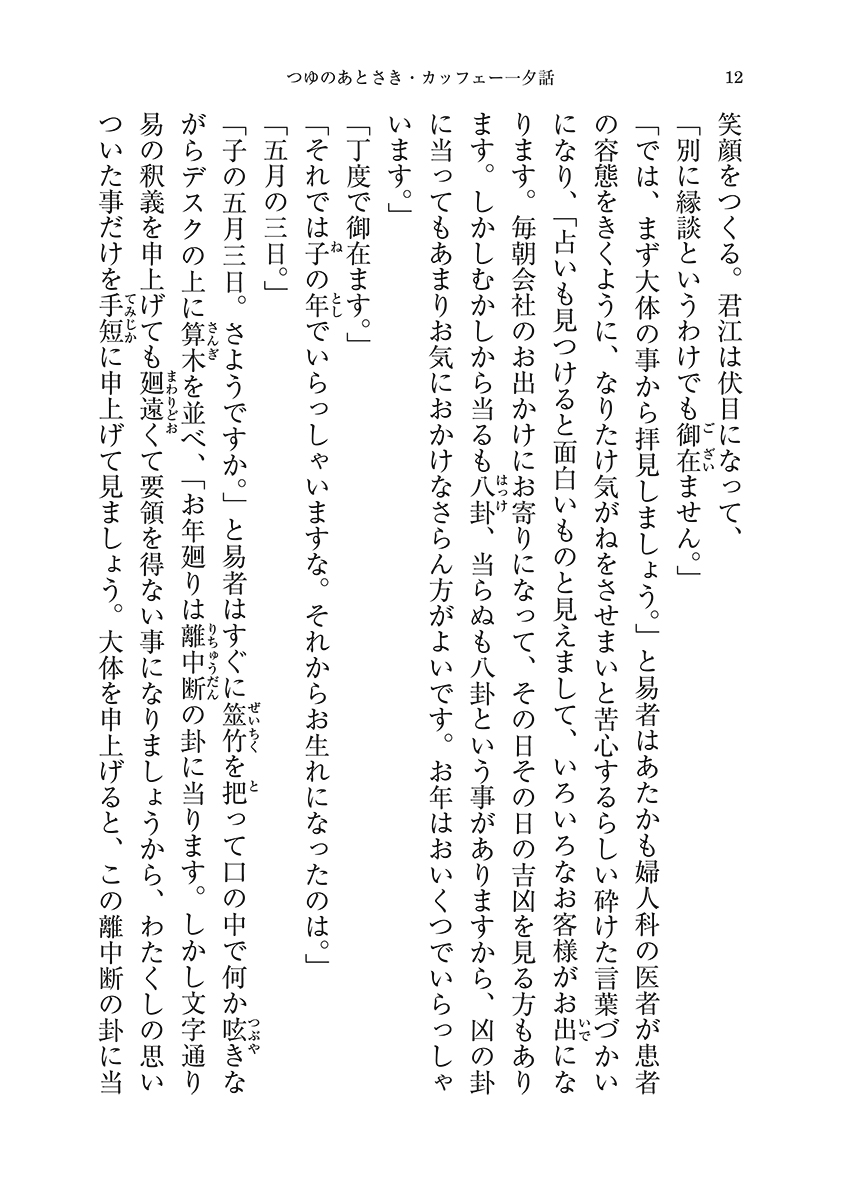 つゆのあとさき・カッフェー一夕話
12
笑顔をつくる。君江は伏目になって、
「別に縁談というわけでも御在ません。」
「では、まず大体の事から拝見しましょう。」と易者はあたかも婦人科の医者が患者
の容態をきくように、なりたけ気がねをさせまいと苦心するらしい砕けた言葉づかい
になり、「占いも見つけると面白いものと見えまして、いろいろなお客様がお出にな
ります。毎朝会社のお出かけにお寄りになって、その日その日の吉凶を見る方もあり
ます。しかしむかしから当るも八卦、当らぬも八卦という事がありますから、凶の卦
に当ってもあまりお気におかけなさらん方がよいです。お年はおいくつでいらっしゃ
います。」
「丁度で御在ます。」
「それでは子の年でいらっしゃいますな。それからお生れになったのは。」
「五月の三日。」
「子の五月三日。さようですか。」と易者はすぐに筮竹を把って口の中で何か呟きな
がらデスクの上に算木を並べ、「お年廻りは離中断の卦に当ります。しかし文字通り
易の釈義を申上げても廻遠くて要領を得ない事になりましょうから、わたくしの思い
ついた事だけを手短に申上げて見ましょう。大体を申上げると、この離中断の卦に当